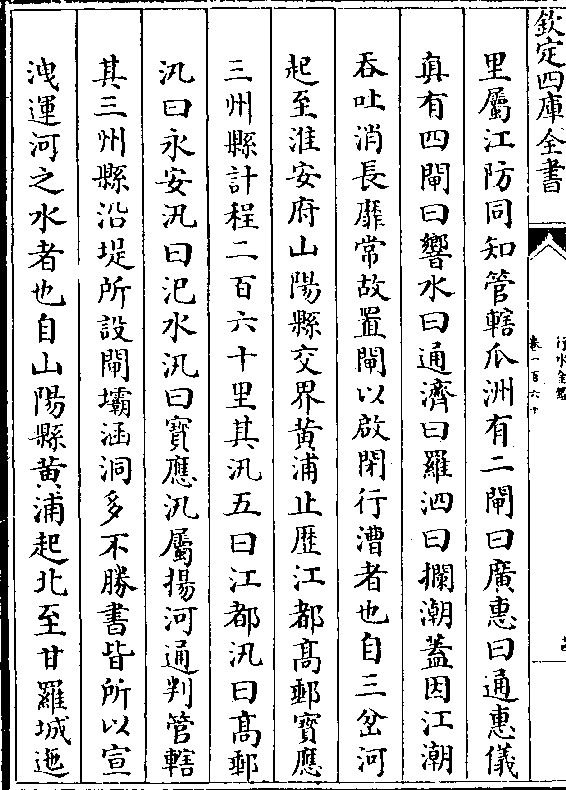 欽定四庫全書
行水金鑑
卷一百六十
里屬江防同知管轄瓜洲有二閘曰廣惠曰通惠儀
真有四閘曰響水曰通濟曰羅泗曰攔潮蓋因江潮
吞吐消長靡常故置閘以啟閉行漕者也自三岔河
起至淮安府山陽縣交界黄浦止歷江都髙郵寶應
三州縣計程二百六十里其汛五曰江都汛曰髙郵
汛曰永安汛曰汜水汛曰寶應汛屬揚河通判管轄
其三州縣沿堤所設閘壩涵洞多不勝書皆所以宣
洩運河之水者也自山陽縣黄浦起北至甘羅城迤